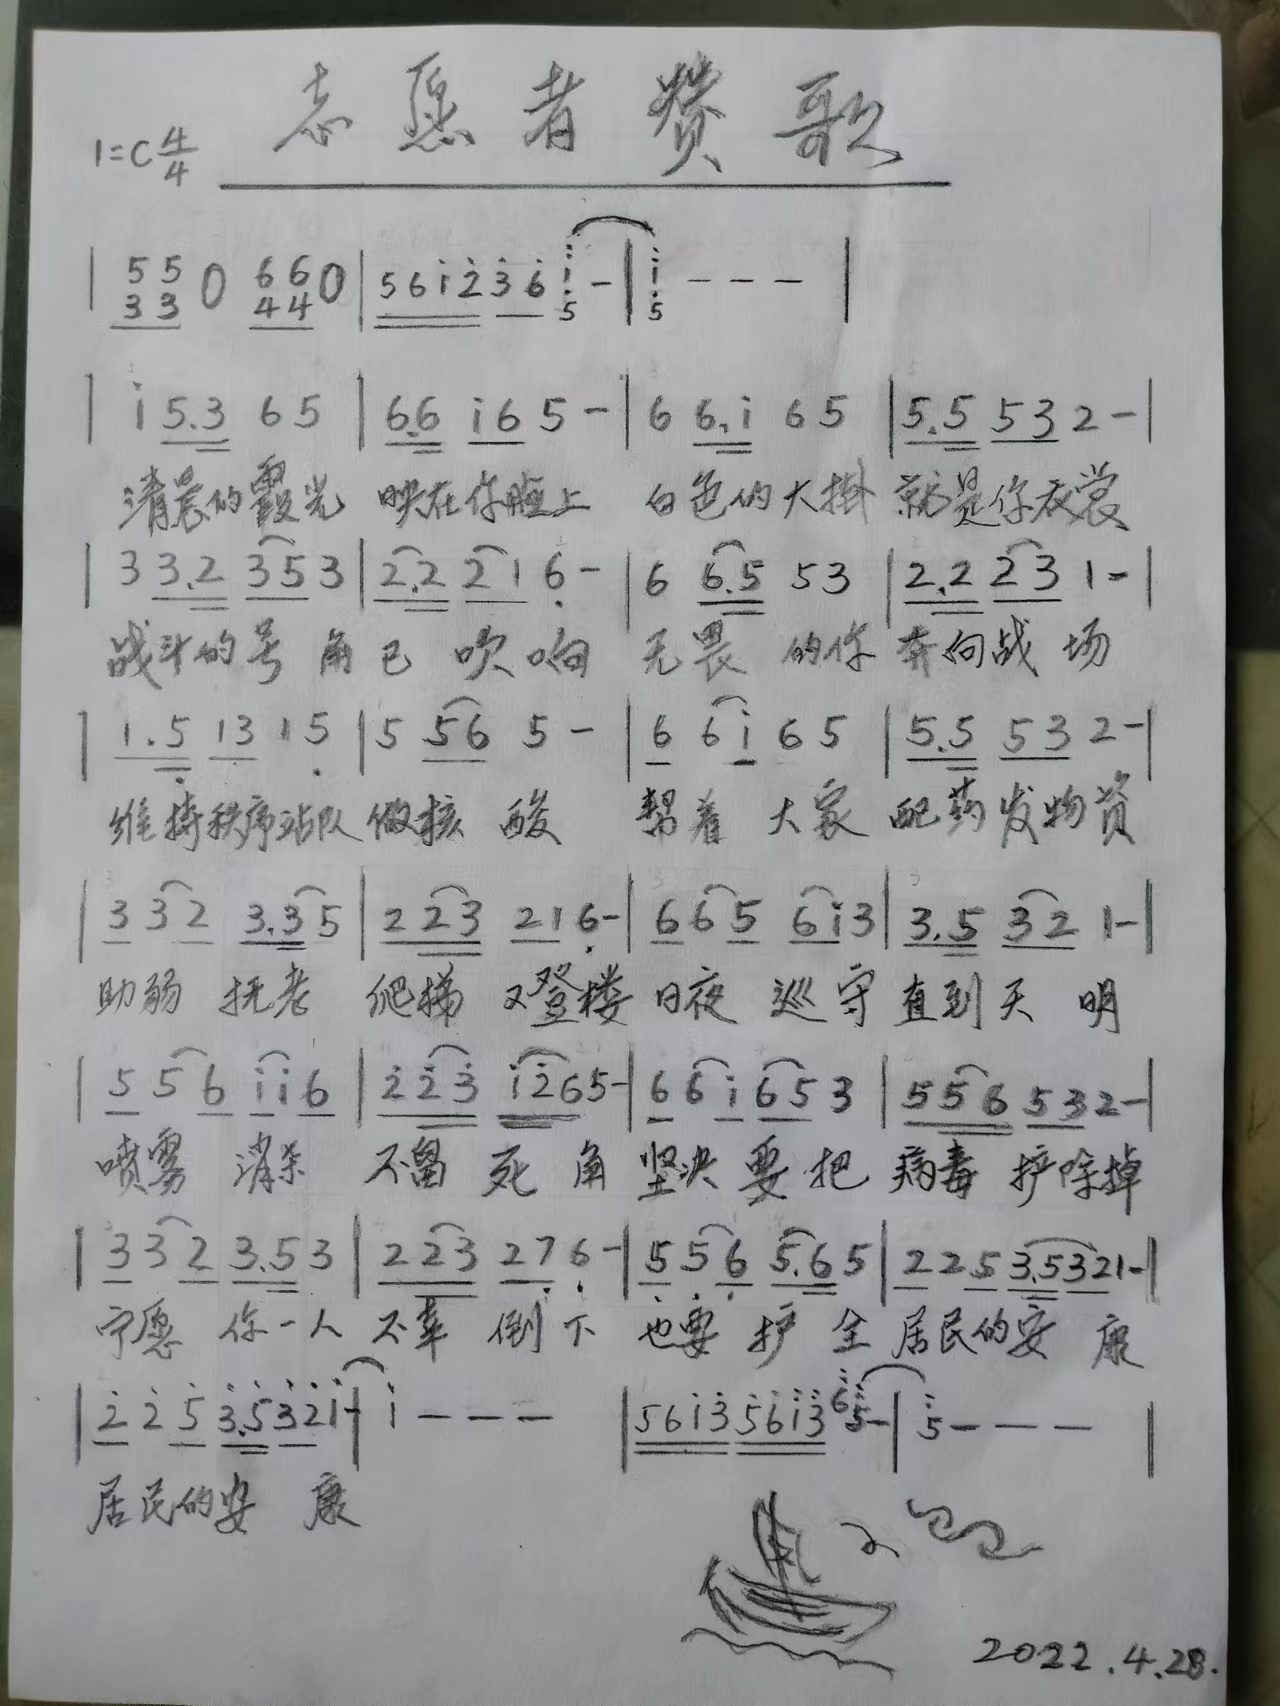 志愿者赞歌
1=C 4/4
| 55 0 66 0 | 5 6 i 2̇ 3̇ 6̇ i – | i – – – |
33 44 5 5
| i 5.3 6 5 | 6.6 i 6 5 – | 6 6.i 6 5 | 5.5 5 3 2 – |
清晨的霞光 映在你脸上 白色的大掛 就是你衣裳
| 3 3.2 3 5 3 | 2.2 2 1 6̣ – | 6 6.5 5 3 | 2.2 2 3 1 – |
战斗的号角已吹响 无畏的你奔向战场
| 1.5̣ 1 3 1 5̣ | 5 5 6 5 – | 6 6 i 6 5 | 5.5 5 3 2 – |
维持秩序站队做核酸 帮着大家配药发物资
| 3 3 2 3.3 5 | 2 2 3 2 1 6̣ – | 6 6 5 6 i 3 | 3.5 3 2 1 – |
助弱抚老 爬梯又登楼 日夜巡守直到天明
| 5 5 6 i i 6 | 2̇ 2̇ 3̇ i 2̇ 6 5 – | 6 6 i 6 5 3 | 5 5 6 5 3 2 – |
喷雾消杀 不留死角 坚决要把病毒护除掉
| 3 3 2 3.5 3 | 2 2 3 2 7̣ 6̣ – | 5̣ 5̣ 6̣ 5.6 5 | 2 2 5 3.5 3 2 1 – |
宁愿你一人不幸倒下 也要护全居民的安康
| 2̇ 2̇ 5̇ 3̇.5̇ 3̇ 2̇ i – | i – – – | 5 6 i 3̇ 5̇ 6̇ i 3̇ 5̇ – | 5̇ – – – |
居民的安康
2022.4.28.